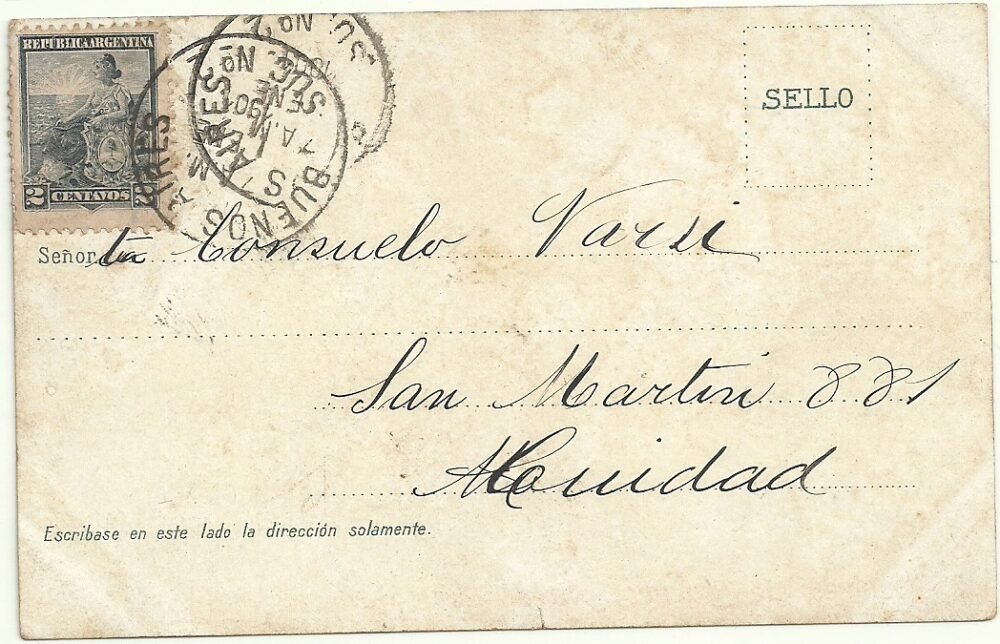 REPUBLICA ARGENTINA
2 CENTAVOS 2
BUENOS AIRES
SUC. No
ENE
1901
7 A.M
SELLO
Señor ta Consuelo Varsi
San Martin 881
Escribase en este lado la dirección solamente.